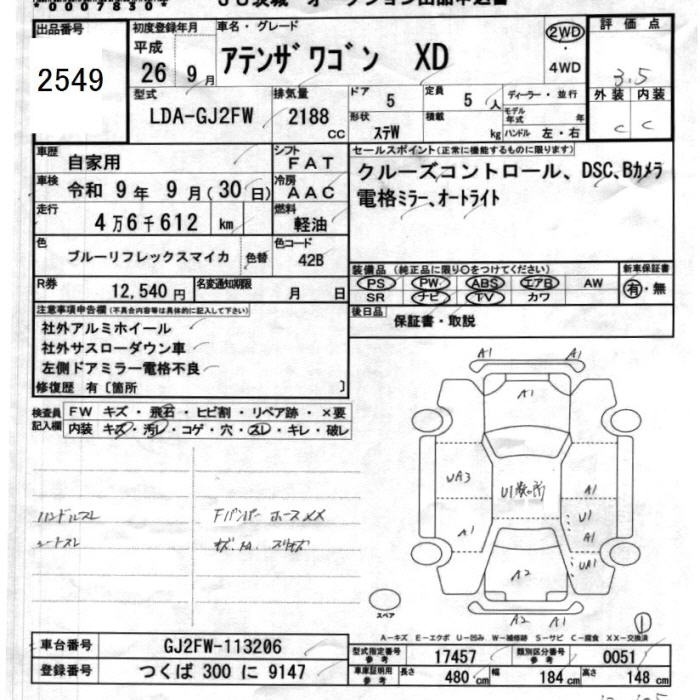 00078504
ＪＵ茨城 オークション出品申込書
出品番号 初度登録年月 車名・グレード 評価点
2549 平成 26 9月 アテンザワゴン XD 2WD 4WD 3.5
型式 排気量 ドア 定員 ディーラー・並行 外装 内装
LDA-GJ2FW 2188 CC 5 5人 モデル年式 年 C C
形状 ステW 積載 kg ハンドル 左・右
車歴 自家用 シフト FAT セールスポイント(正常に機能するものに限ります)
車検 令和 9年 9月(30日) 冷房 AAC クルーズコントロール、DSC、Bカメラ
走行 4万6千612 km 燃料 軽油 電格ミラー、オートライト
色 ブルーリフレックスマイカ 色替 色コード 42B
装備品(純正品に限り○をつけてください) 新車保証書
PS PW ABS エアB AW 有・無
R券 12,540円 名変通知期限 月 日 SR ナビ TV カワ
注意事項申告欄(不具合内容等は具体的に記入して下さい) 後日品 保証書・取説
社外アルミホイール
社外サスローダウン車
左側ドアミラー電格不良
修復歴 有〔箇所 〕
検査員記入欄 FW キズ・飛石・ヒビ割・リペア跡・×要
内装 キズ・汚レ・コゲ・穴・スレ・キレ・破レ
ハンドルスレ Fバンパー ホースXX
シートスレ
A1 A1
A1
UA3 A1
U1 U1
A1 A1
UA1
A2
スペア A2 A1 1
A-キズ E-エクボ U-凹み W-補修跡 S-サビ C-腐食 XX-交換済
車台番号 GJ2FW-113206 型式指定番号 参考 17457 類別区分番号 参考 0051
登録番号 つくば 300 に 9147 車庫証明用 参考 長さ 480 cm 幅 184 cm 高さ 148 cm